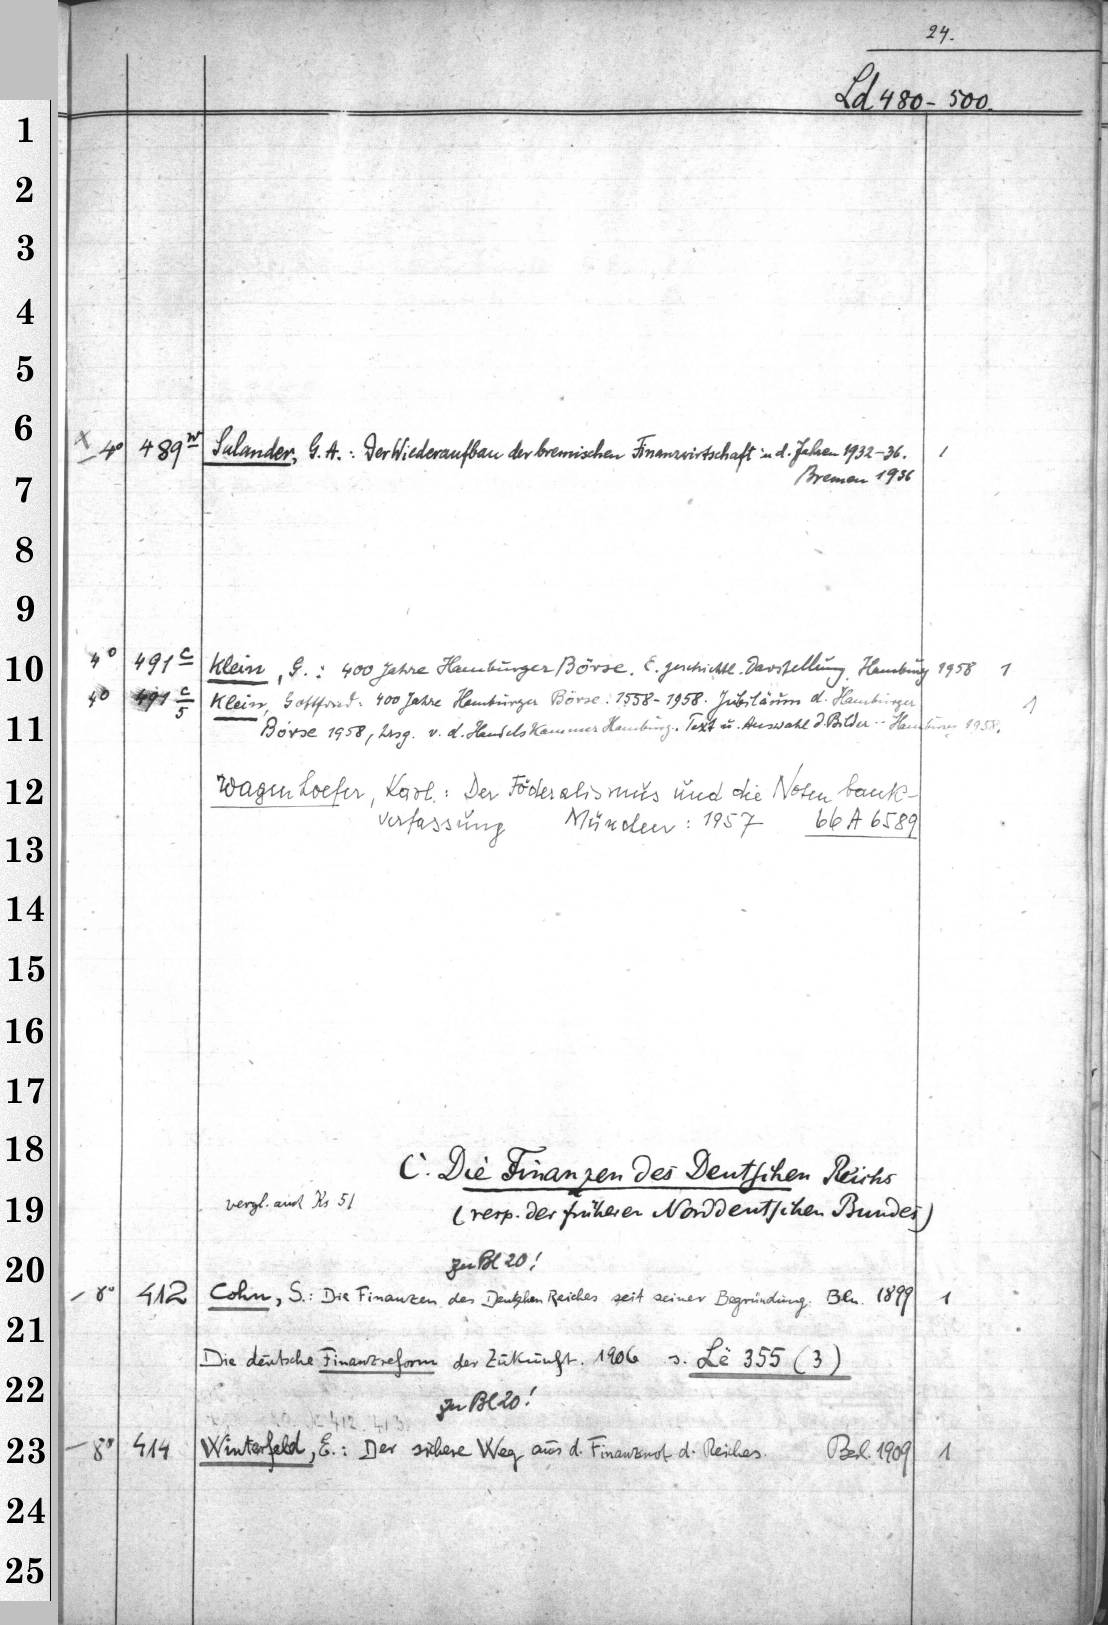 24.
Ld 480-500.
1
2
3
4
5
6
x 4° 489w Sulander, G. A.: Der Wiederaufbau der bremischen Finanzwirtschaft in d. Jahren 1932-36. 1
Bremen 1936
7
8
9
10
4° 491c Klein, G.: 400 Jahre Hamburger Börse. E. geschichtl. Darstellung. Hamburg 1958 1
4° 491c/5 Klein, Gottfried: 400 Jahre Hamburger Börse. 1558-1958. Jubiläum d. Hamburger 1
11
Börse 1958, hrsg. v. d. Handelskammer Hamburg. Text u. Auswahl d. Bilder .. Hamburg 1958.
12
Wagenhoefer, Karl: Der Föderalismus und die Notenbank-
verfassung München: 1957 66 A 6589
13
14
15
16
17
18
C. Die Finanzen des Deutschen Reichs
19
vergl. auch Ks 51
(resp. der früheren Norddeutschen Bundes)
20
zu Bl 20!
- 8° 412 Cohn, S.: Die Finanzen des Deutschen Reiches seit seiner Begründung. Bln. 1899 1
21
Die deutsche Finanzreform der Zukunft. 1906 s. Le 355 (3)
22
zu Bl 20!
23
- 8° 414 Winterfeld, E.: Der sichere Weg aus d. Finanznot d. Reiches. Berl. 1909 1
24
25